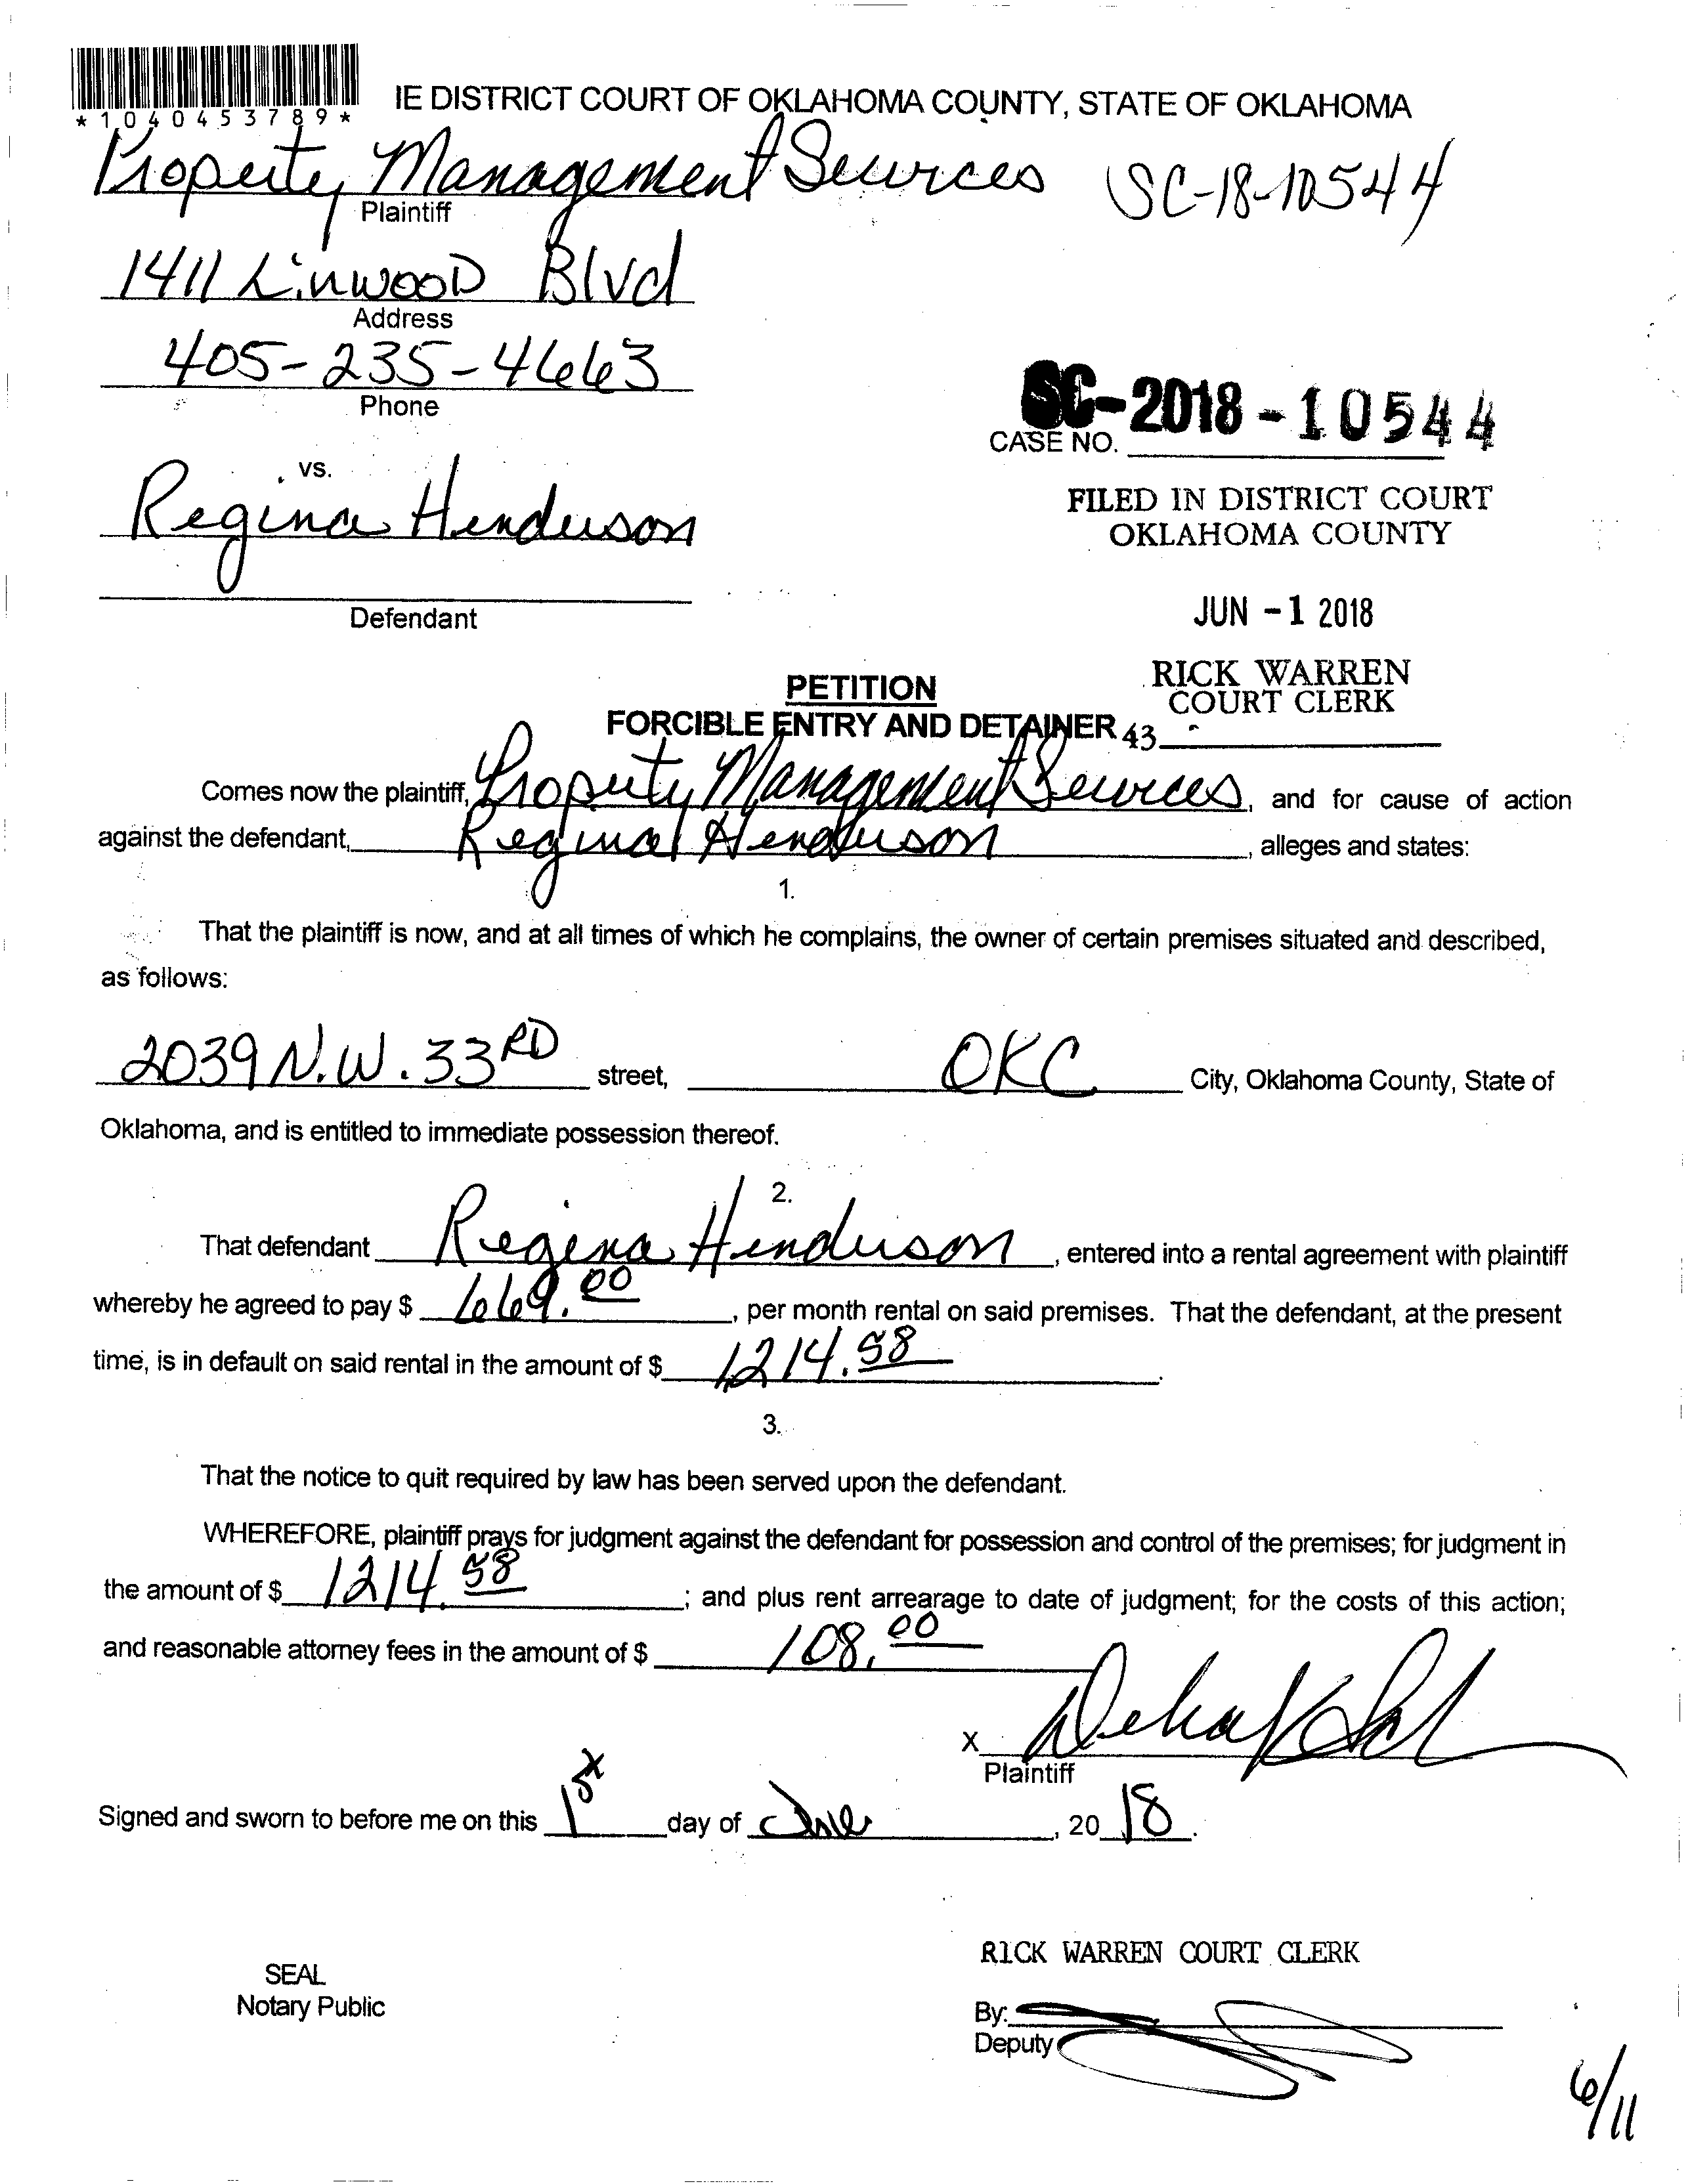 *1040453789*
IE DISTRICT COURT OF OKLAHOMA COUNTY, STATE OF OKLAHOMA
Property Management Services SC-18-10544
Plaintiff
1411 Linwood Blvd
Address
405-235-4663
Phone
SC-2018-10544
CASE NO.
vs.
Regina Henderson
FILED IN DISTRICT COURT
OKLAHOMA COUNTY
Defendant
JUN -1 2018
RICK WARREN
COURT CLERK
PETITION
FORCIBLE ENTRY AND DETAINER 43
Comes now the plaintiff, Property Management Services, and for cause of action
against the defendant, Regina Henderson, alleges and states:
1.
That the plaintiff is now, and at all times of which he complains, the owner of certain premises situated and described,
as follows:
2039 N.W. 33RD street, OKC City, Oklahoma County, State of
Oklahoma, and is entitled to immediate possession thereof.
2.
That defendant Regina Henderson, entered into a rental agreement with plaintiff
whereby he agreed to pay $ 669.00, per month rental on said premises. That the defendant, at the present
time, is in default on said rental in the amount of $ 1214.58.
3.
That the notice to quit required by law has been served upon the defendant.
WHEREFORE, plaintiff prays for judgment against the defendant for possession and control of the premises; for judgment in
the amount of $ 1214.58; and plus rent arrearage to date of judgment; for the costs of this action;
and reasonable attorney fees in the amount of $ 108.00
X
Plaintiff
Signed and sworn to before me on this 1st day of June, 20 18.
RICK WARREN COURT CLERK
SEAL
Notary Public
By:
Deputy
6/11